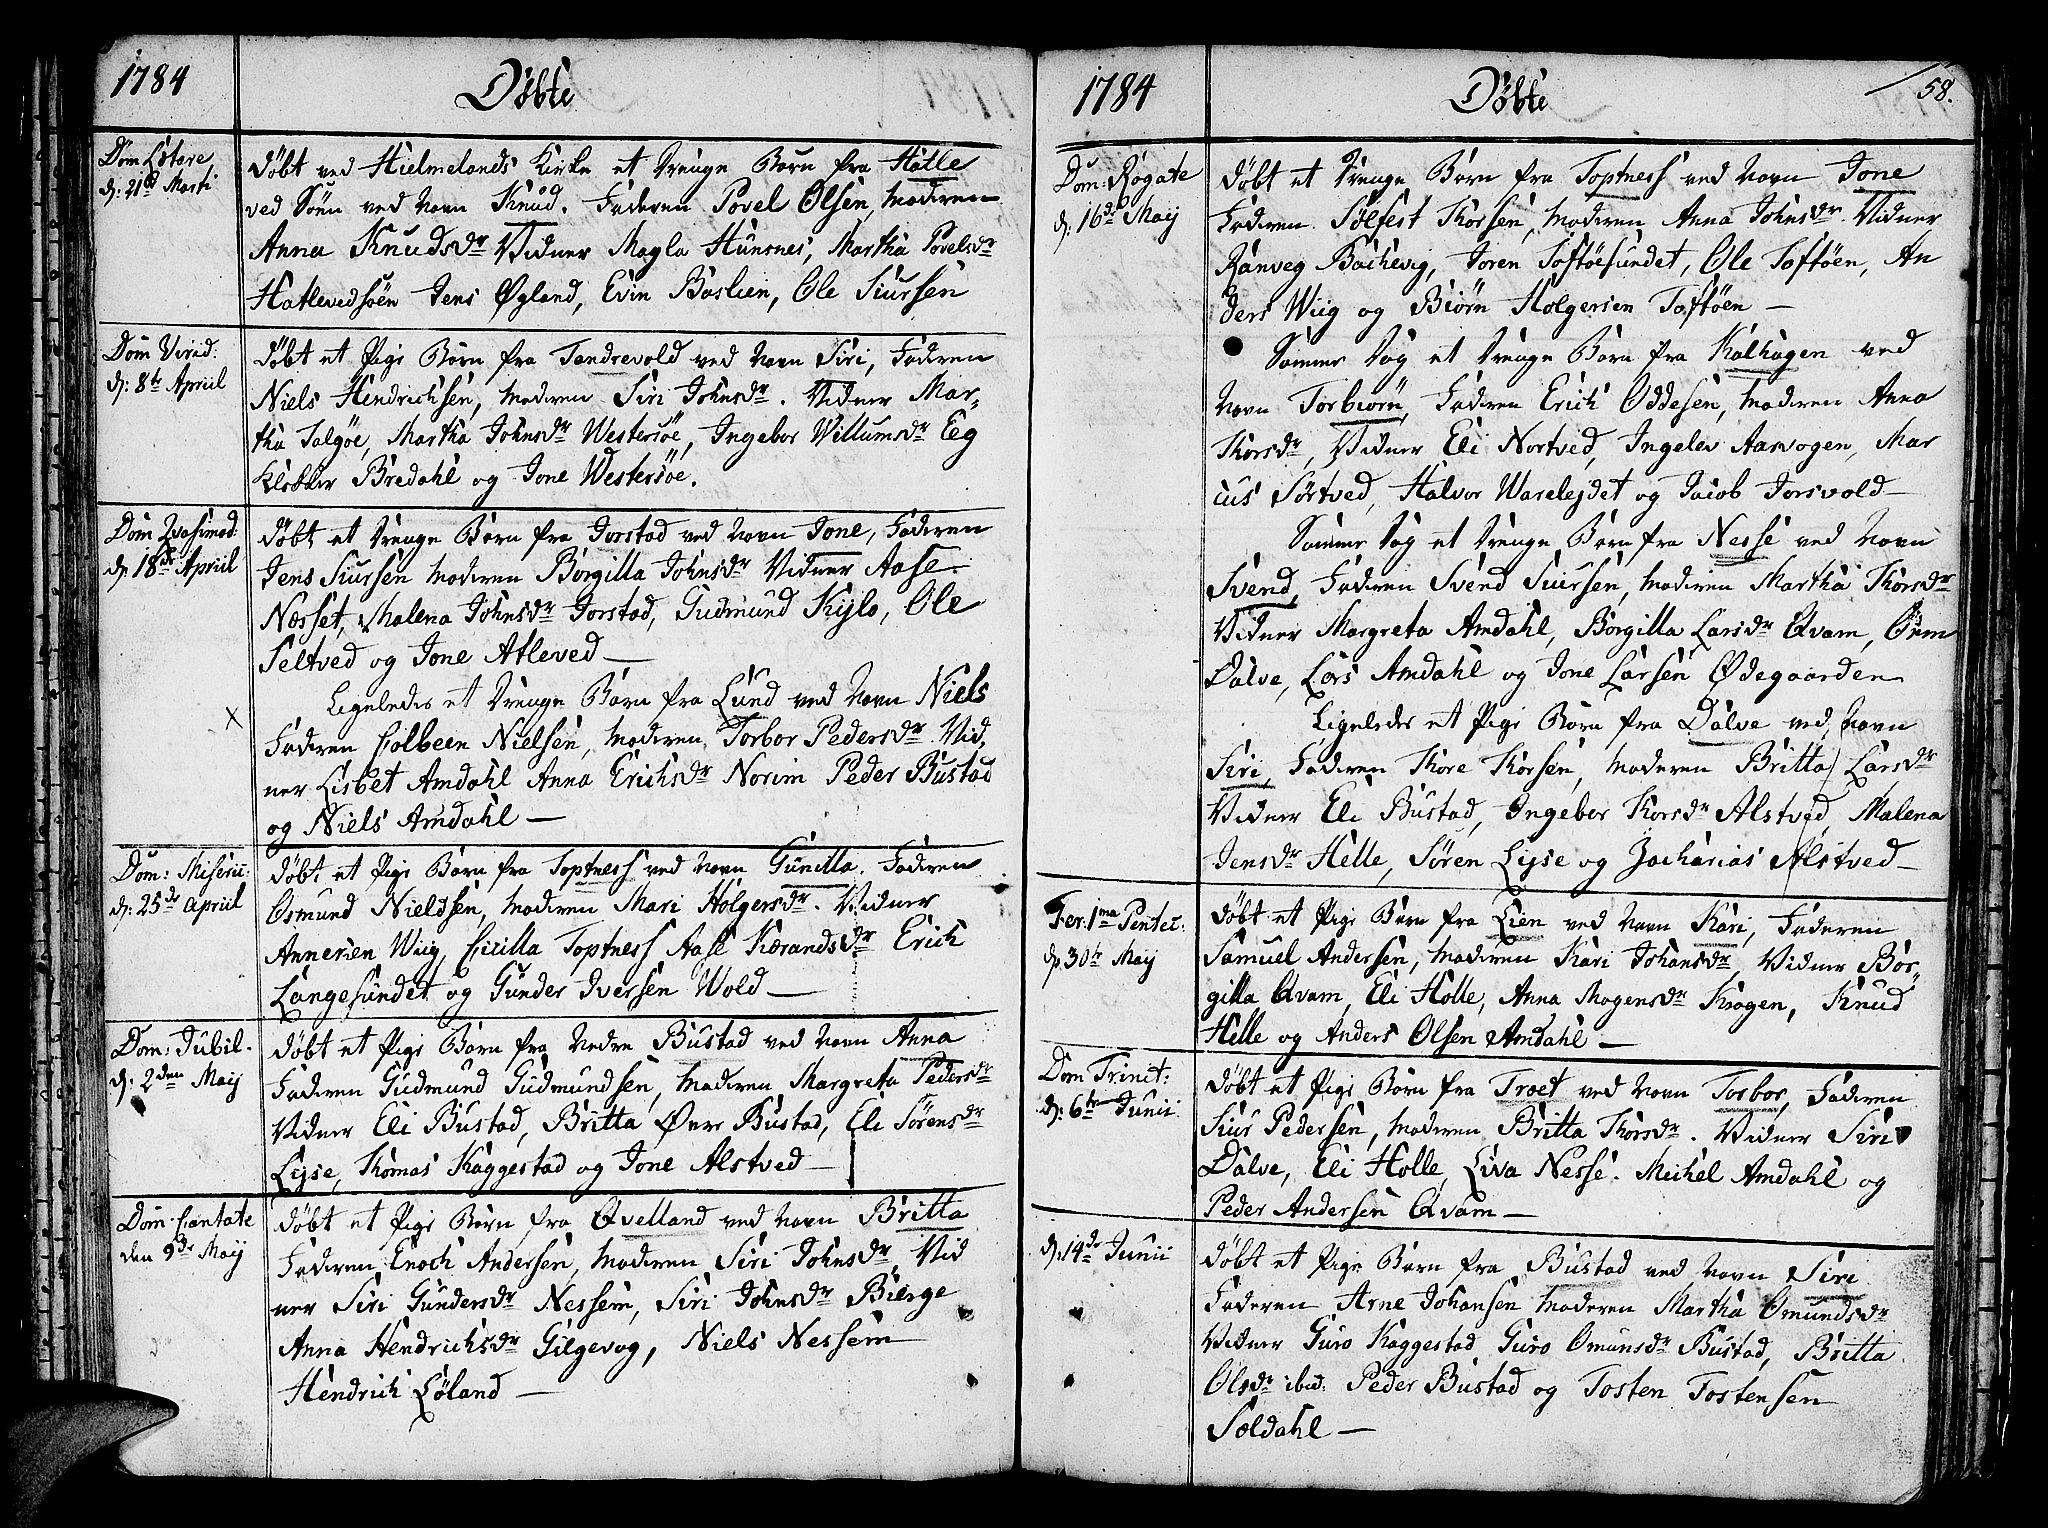 1784
Döbte
Dom Lætare
d: 21de Marti
Döbt ved Hielmelands Kirke et Drenge Barn fra Hatle
ved Söen ved Navn Knud. Faderen Povel Olsen, Moderen
Anna Knudsdr Vidner Magla Hunsnes, Martha Povelsdr
Hatlevedsöen Jens Øgland, Evin Baslien, Ole Siursen
Dom Virid:
d: 8de Apriil
Döbt et Pige Barn fra Tandrevold ved Navn Siri, Faderen
Niels Hendrichsen, Moderen Siri Johnsdr. Vidner Mar-
tha Talgöe, Martha Johnsdr Westersöe, Ingebor Willumsdr Eeg
Klokker Bredahl og Jone Westersöe.
Dom Qvasimod:
d: 18de Apriil
Döbt et Drenge Barn fra Jorstad ved Navn Jone, Faderen
Jens Siursen Moderen Borgilla Johnsdr Vidner Aase
Næsset, Malena Johnsdr Jorstad, Gudmund Kylo, Ole
Seltved og Jone Atleved —
Ligeledes et Drenge Barn fra Lund ved Navn Niels
X
Faderen Colbeen Nielsen, Moderen Torbor Pedersdr. Vid
ner Lisbet Amdahl Anna Erichsdr Norim Peder Bustad
og Niels Amdahl —
Dom: Miserii:
d: 25de Apriil
Döbt et Pige Barn fra Toptness ved Navn Gunilla. Faderen
Osmund Nieldsen, Moderen Mari Holgersdr. Vidner
Annerien Wiig, Cicilla Toptness Aase Kærandsdr Erich
Langesundet og Gunder Iversen Wold —
Dom: Jubil.
d: 2den Maij
Döbt et Pige Barn fra Nedre Bustad ved Navn Anna
Faderen Gudmund Gudmundsen, Moderen Margreta Pedersdr
Vidner Eli Bustad, Britta Øvre Bustad, Eli Sörensdr
Lyse, Thomas Kaggestad og Jone Alstved —
Dom: Cantate
den 9de Maij
Döbt et Pige Barn fra Qvelland ved Navn Britta
Faderen Enoch Andersen, Moderen Siri Johnsdr, Vid
ner Siri Gundersdr Nessem, Siri Johnsdr Bierge
Anna Hendrichsdr Gilgevog, Niels Nessem
Hendrich Löland —
1784
Döbte
58.
Dom: Rogate
d: 16de Maij
Döbt et Drenge Barn fra Toptness ved Navn Jone
Faderen Solfest Thorsen, Moderen Anna Johnsdr. Vidner
Ranveg Bachevig, Joren Toftöesundet, Ole Toftöen, An
ders Wiig og Biörn Holgersen Toftöen —
Samme Dag et Drenge Barn fra Kalhagen ved
Navn Torbiörn, Faderen Erich Oddesen, Moderen Anna
Thorsdr, Vidner Eli Nortved, Ingelev Aasvogen, Mar
cus Sörtved, Halvor Warelejdet og Jacob Jorsvold —
Samme Dag et Drenge Barn fra Nesse ved Navn
Svend, Faderen Svend Siursen, Moderen Martha Thorsdr
Vidner Margreta Amdahl, Borgilla Larsdr Qvam, Orm
Dalve, Lars Amdahl og Jone Larsen Ødegaarden
Ligeledes et Pige Barn fra Dalve ved Navn
Siri, Faderen Thore Thorsen, Moderen Britta Larsdr
Vidner Eli Bustad, Ingebor Thorsdr Alstved, Malena
Jensdr Helle, Sören Lyse og Zacharias Alstved —
Fer: 1ma Pentec:
d: 30te Maij
Döbt et Pige Barn fra Lien ved Navn Kari, Faderen
Samuel Andersen, Moderen Kari Johansdr, Vidner Bor-
gilla Qvam, Eli Holle, Anna Mogensdr Krogen, Knud
Helle og Anders Olsen Amdahl —
Dom Trinit:
d: 6te Junii
Döbt et Pige Barn fra Troet ved Navn Torbor, Faderen
Siur Pedersen, Moderen Britta Thorsdr. Vidner Siri
Dalve, Eli Holle, Liva Nesse. Michel Amdahl og
Peder Andersen Qvam —
d: 14de Junii
Döbt et Pige Barn fra Bustad ved Navn Siri
Faderen Arne Johansen Moderen Martha Omundsdr
Vidner Guro Kaggestad Guro Omunsdr Bustad, Britta
Olsdr ibid: Peder Bustad og Tosten Tostensen
Soldahl —